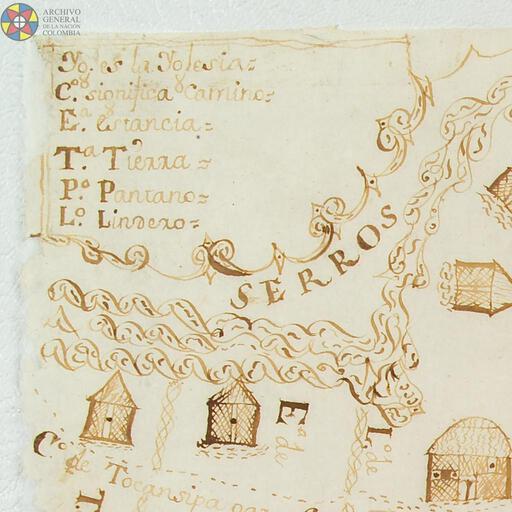 ARCHIVO
GENERAL
DE LA NACIÓN
COLOMBIA
Yg.ª es la Yglesia=
C.º significa Camino=
E.ª Estancia=
T.ª Tierra=
P.º Pantano=
L.º Lindero=
SERROS
E.ª de
L.º de
C.º de Tocansipa
T.